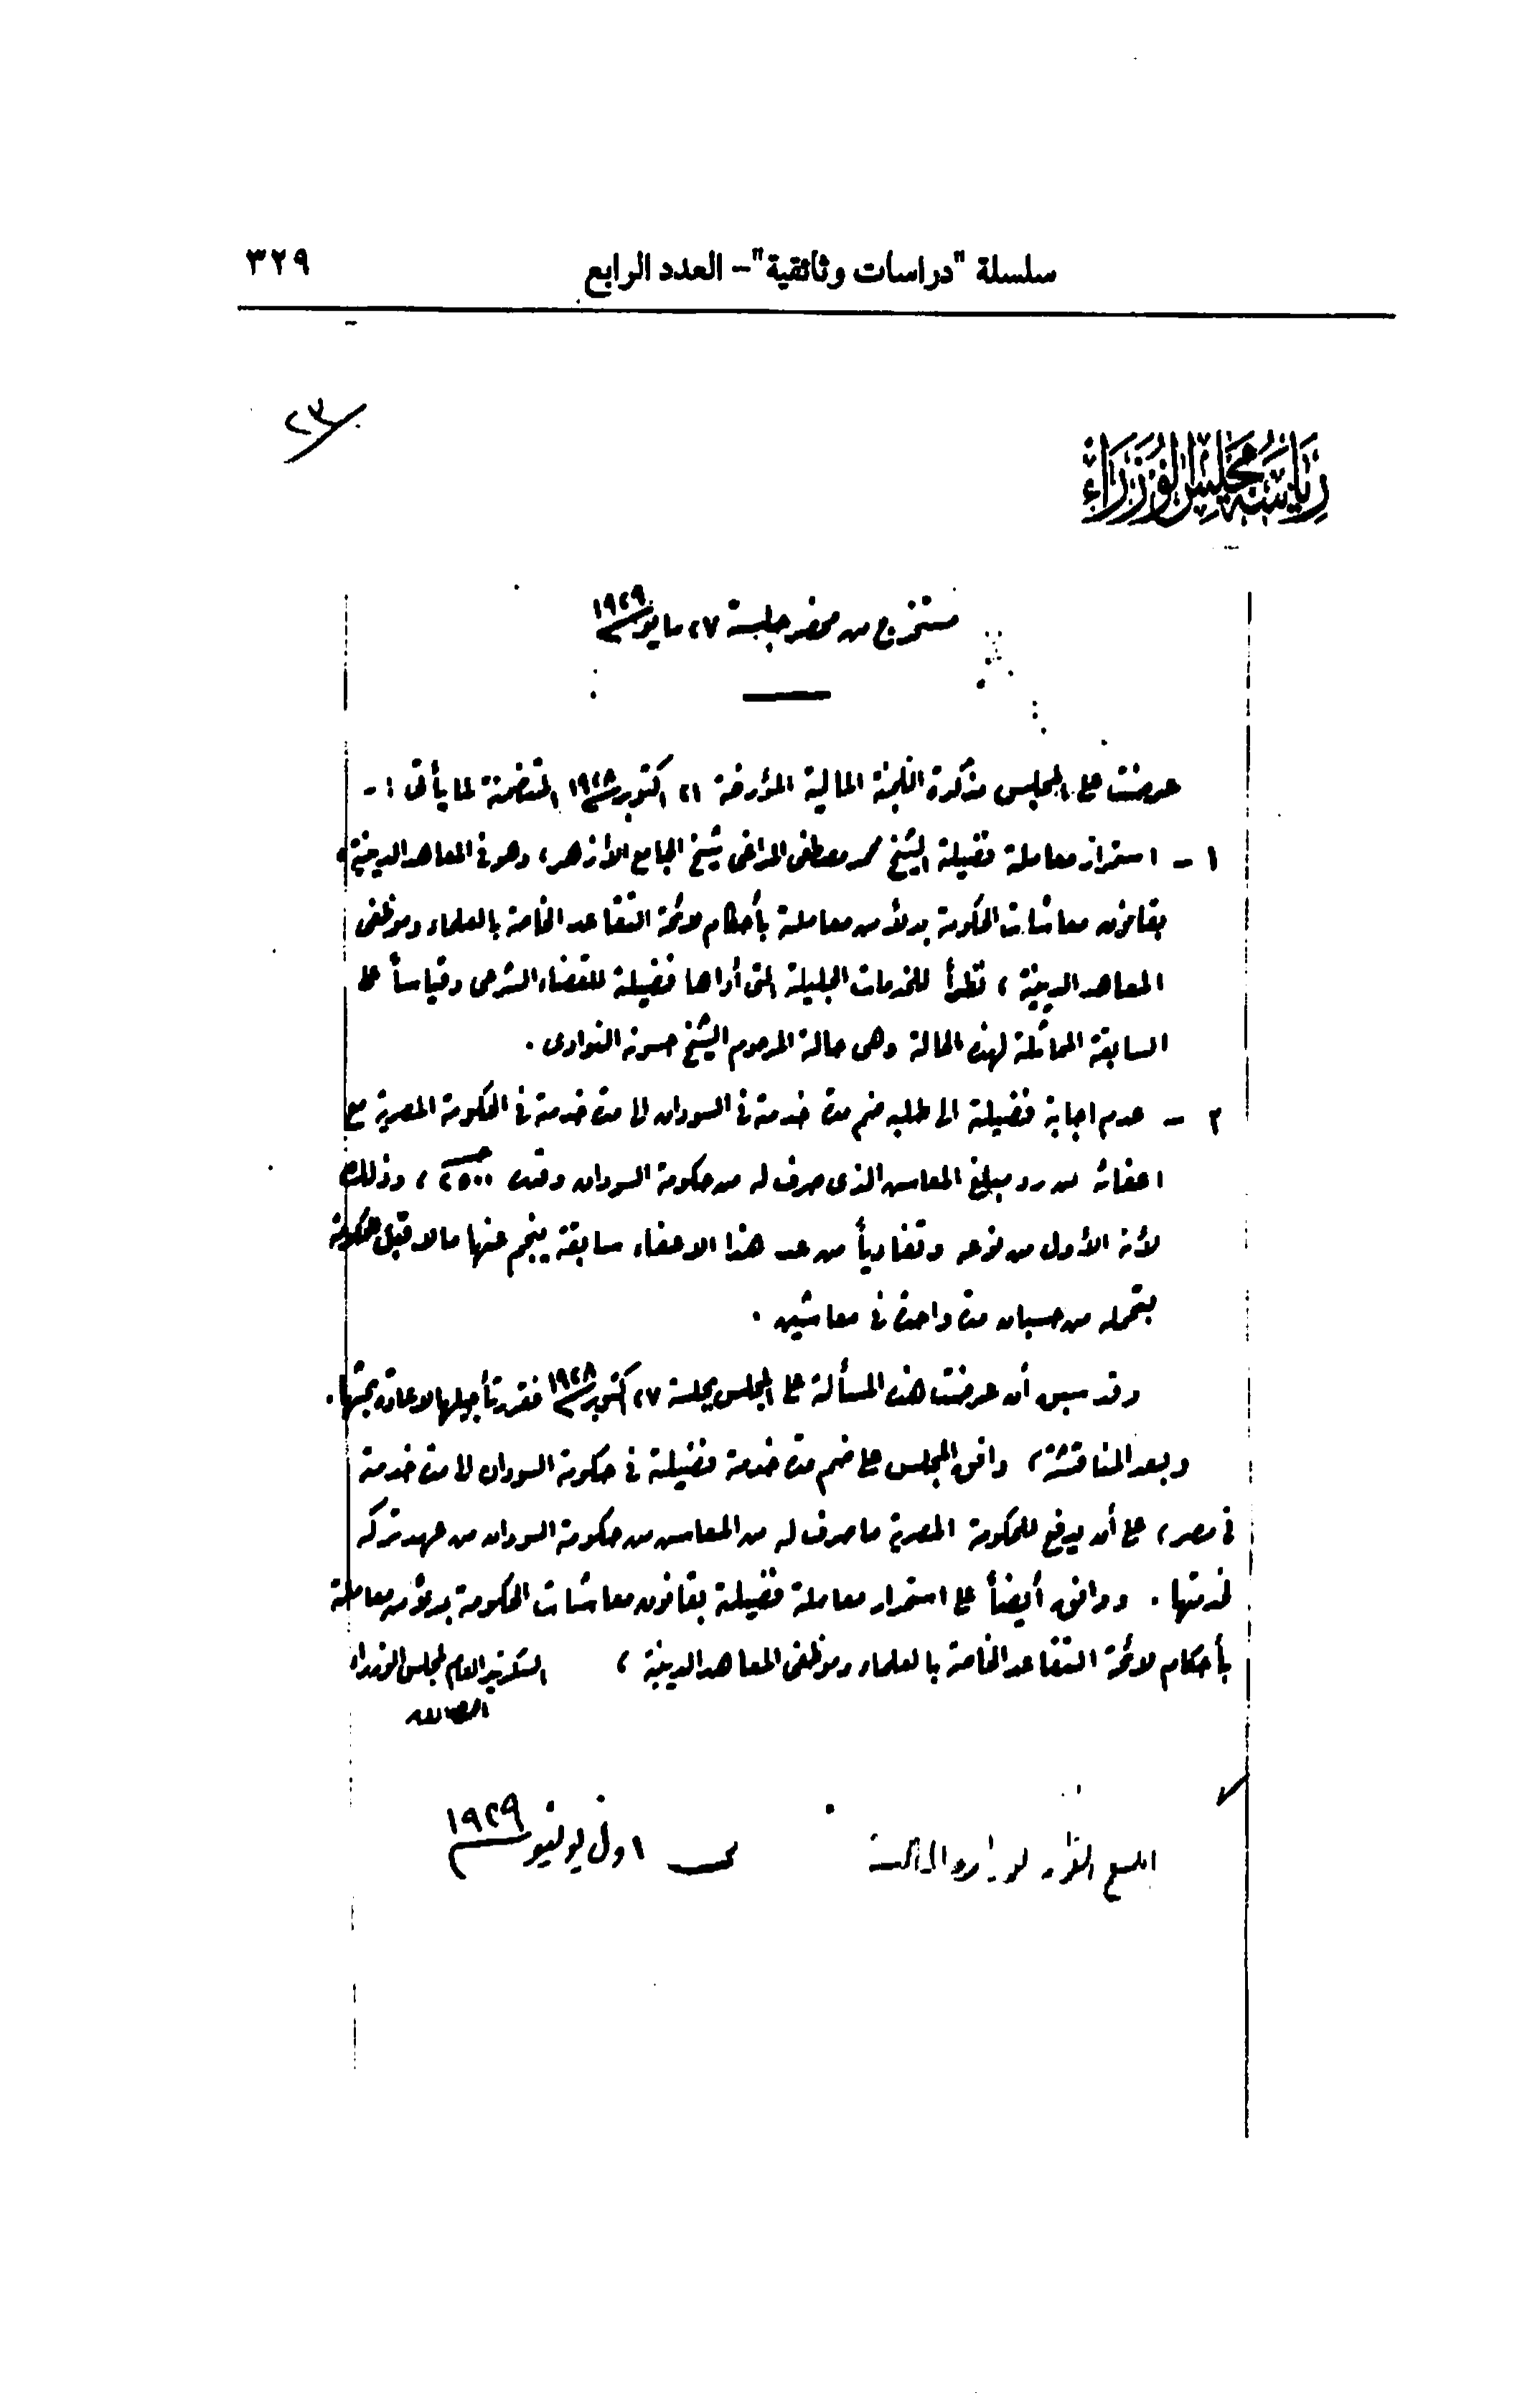 سلسلة "دراسات وثائقية"- العدد الرابع ٣٢٩
٢٣
رياسة مجلس الوزراء
مستخرج من محضر جلسة ٢٧ مايو ١٩٢٩
عرضت على المجلس مذكرة اللجنة المالية المؤرخة ٢١ اكتوبر ١٩٢٨ المتضمنة لما يأتى :-
١ - استمرار معاملة فضيلة الشيخ محمد مصطفى المراغى شيخ الجامع الأزهر، وهو فى المعاهد الدينية،
بقانون معاشات الحكومة بدلاً من معاملته بأحكام لائحة التقاعد الخاصة بالعلماء وموظفى
المعاهد الدينية ، نظراً للخدمات الجليلة التى أداها فضيلته للقضاء الشرعى وقياساً على
السابقة المماثلة لهذه الحالة وهى حالة المرحوم الشيخ حسونه النواوى .
٢ - عدم اجابة فضيلته الى طلبه ضم مدة خدمته فى السودان الى مدة خدمته فى الحكومة المصرية مع
اعفائه من رد مبلغ المعاش الذى صرف له من حكومة السودان وقدره ٢٥٠٠ ، وذلك
لأنه الأول من نوعه وتفادياً من عد هذا الاعفاء سابقة ينجم عنها ما لا قبل للحكومة
بتحمله من حسبان مدة واحدة فى معاشين .
وقد سبق أن عرضت هذه المسألة على المجلس بجلسة ٢٧ اكتوبر ١٩٢٨ فقرر تأجيلها لاعادة بحثها .
وبعد المناقشة ، وافق المجلس على ضم مدة خدمة فضيلته فى حكومة السودان الى مدة خدمته
فى مصر ، على أن يدفع للحكومة المصرية ما صرف له من المعاش من حكومة السودان من عهد تركه
لخدمتها . ووافق أيضاً على استمرار معاملة فضيلته بقانون معاشات الحكومة بدلاً من معاملته
بأحكام لائحة التقاعد الخاصة بالعلماء وموظفى المعاهد الدينية ، السكرتير العام لمجلس الوزراء
ابلغ القرار لوزارة المالية فى اول يونيو ١٩٢٩